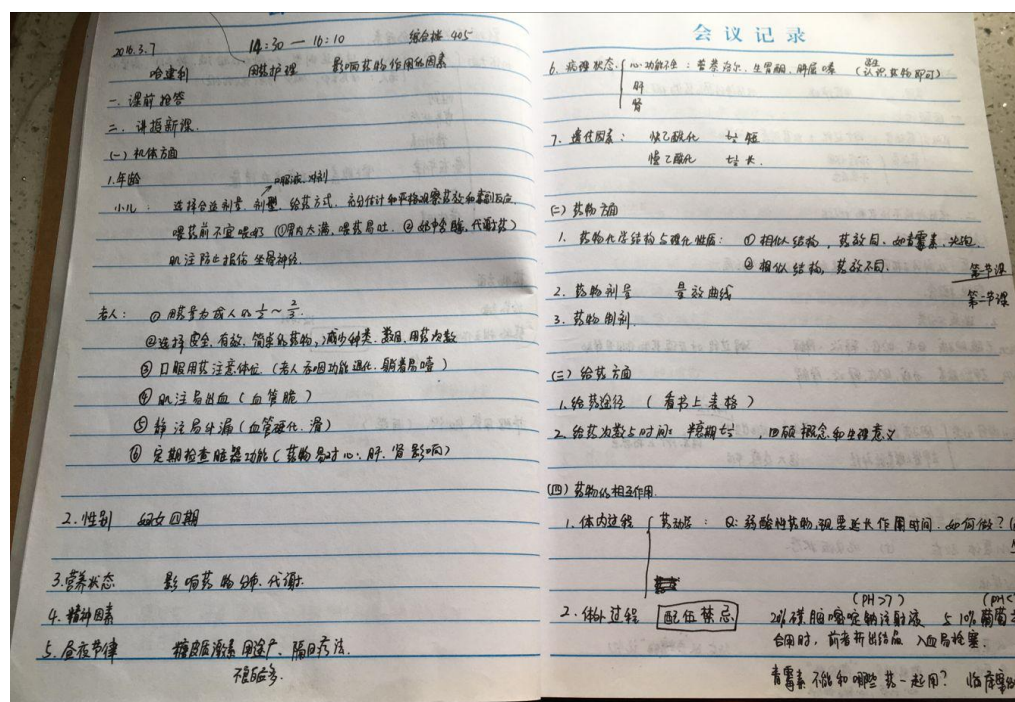 2016.3.7 14:30 — 16:10 综合楼 405
哈建利 用药护理 影响药物作用的因素
一、课前抢答
二、讲授新课.
(一) 机体方面
1.年龄
口服液、冲剂
小儿: 选择合适剂量、剂型、给药方式、充分估计和严格观察药效和毒副反应
喂药前不宜喂奶 (①胃内太满, 喂药易吐. ②奶中含酶,代谢药)
肌注防止损伤坐骨神经.
老人: ① 用药量为成人的 1/2 ~ 2/3.
②选择安全、有效、简单的药物, 减少种类、数目、用药次数
③ 口服用药注意体位. (老人吞咽功能退化、躺着易噎)
④ 肌注易出血 (血管脆)
⑤ 静注易外漏 (血管硬化、滑)
⑥ 定期检查脏器功能 (药物易对心、肝、肾影响)
2.性别 妇女四期
3.营养状态 影响药物分布、代谢.
4.精神因素
5.昼夜节律 糖皮质激素 用途广、隔日疗法.
不良反应多.
会议记录
6.病理状态: 心功能不全: 普萘洛尔、
肝
肾
(认识药物即可)
7.遗传因素: 快乙酰化 t½ 短
慢乙酰化 t½ 长.
(二) 药物方面
1. 药物化学结构与理化性质: ① 相似结构, 药效同. 如青霉素、头孢.
② 相似结构, 药效不同.
第一节课
2. 药物剂量 量效曲线
第二节课
3. 药物剂型.
(三) 给药方面
1.给药途径 (看书上表格)
2.给药次数与时间: 半衰期 t½, 回顾概念和生理意义
(四) 药物的相互作用.
1.体内过程 药动学: Q: 弱酸性药物,现要延长作用时间. 如何做?
2.体外过程 配伍禁忌
(PH>7) (PH<
20%磺胺嘧啶钠注射液 与 10% 葡萄
合用时, 前者析出结晶 入血易栓塞.
青霉素 不能和哪些药一起用? 临床